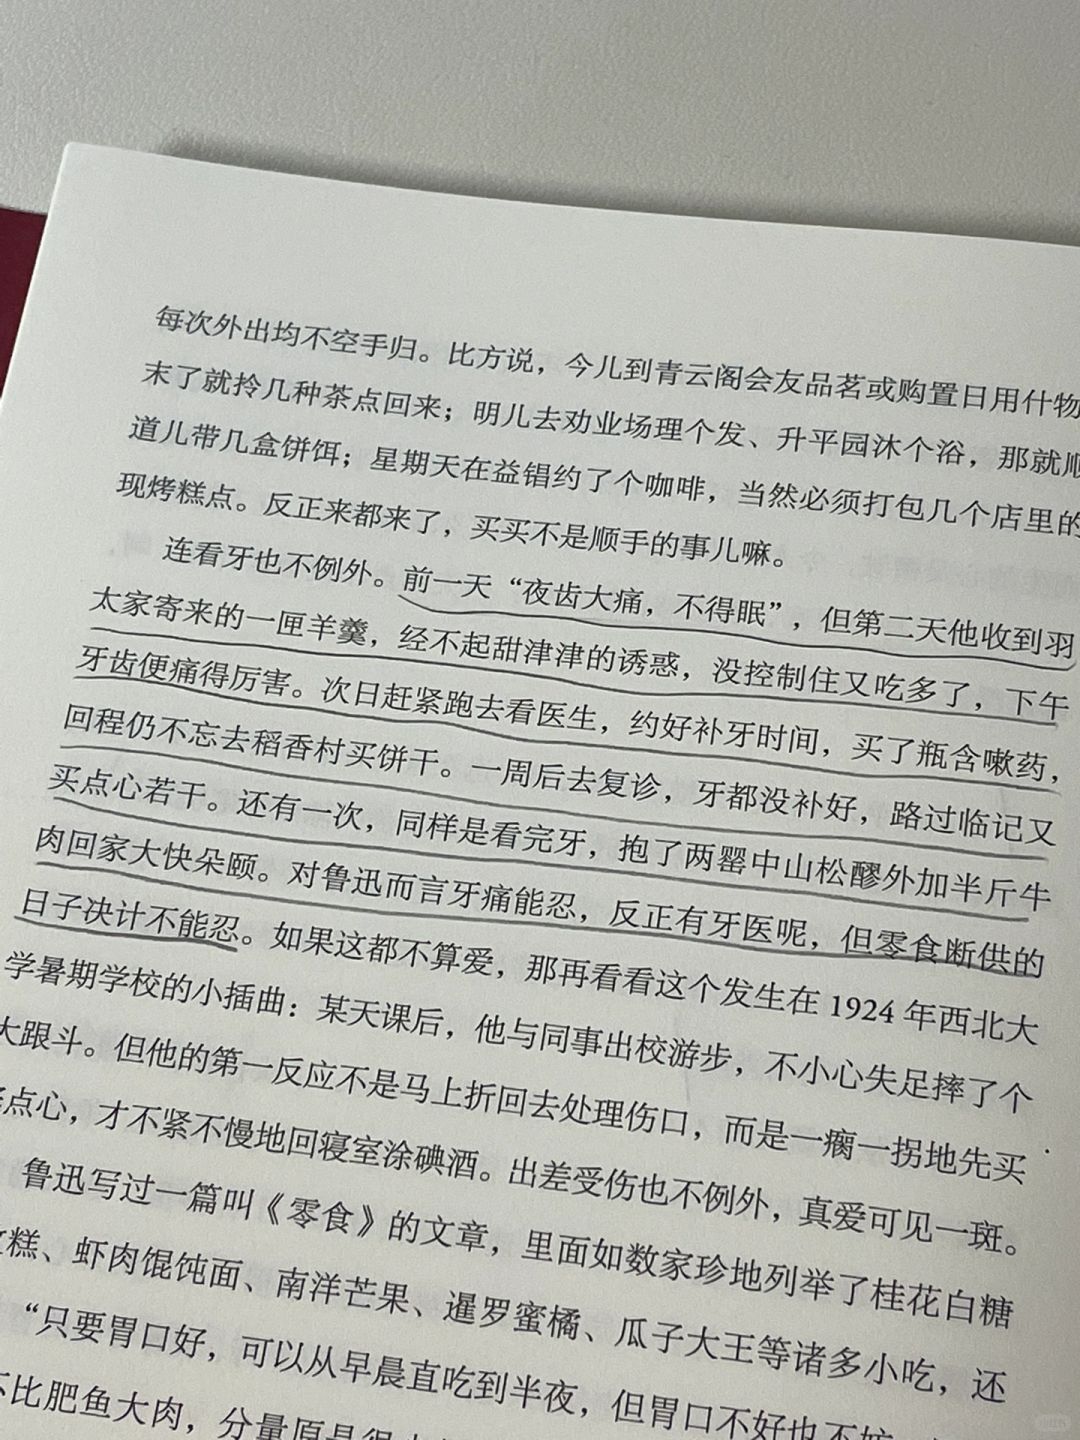 每次外出均不空手归。比方说，今儿到青云阁会友品茗或购置日用什物
末了就拎几种茶点回来；明儿去劝业场理个发、升平园沐个浴，那就顺
道儿带几盒饼饵；星期天在益锠约了个咖啡，当然必须打包几个店里的
现烤糕点。反正来都来了，买买不是顺手的事儿嘛。
连看牙也不例外。前一天“夜齿大痛，不得眠”，但第二天他收到羽
太家寄来的一匣羊羹，经不起甜津津的诱惑，没控制住又吃多了，下午
牙齿便痛得厉害。次日赶紧跑去看医生，约好补牙时间，买了瓶含嗽药，
回程仍不忘去稻香村买饼干。一周后去复诊，牙都没补好，路过临记又
买点心若干。还有一次，同样是看完牙，抱了两罂中山松醪外加半斤牛
肉回家大快朵颐。对鲁迅而言牙痛能忍，反正有牙医呢，但零食断供的
日子决计不能忍。如果这都不算爱，那再看看这个发生在 1924 年西北大
学暑期学校的小插曲：某天课后，他与同事出校游步，不小心失足摔了个
大跟斗。但他的第一反应不是马上折回去处理伤口，而是一瘸一拐地先买
点心，才不紧不慢地回寝室涂碘酒。出差受伤也不例外，真爱可见一斑。
鲁迅写过一篇叫《零食》的文章，里面如数家珍地列举了桂花白糖
糕、虾肉馄饨面、南洋芒果、暹罗蜜橘、瓜子大王等诸多小吃，还
“只要胃口好，可以从早晨直吃到半夜，但胃口不好也不妨
不比肥鱼大肉，分量原是很